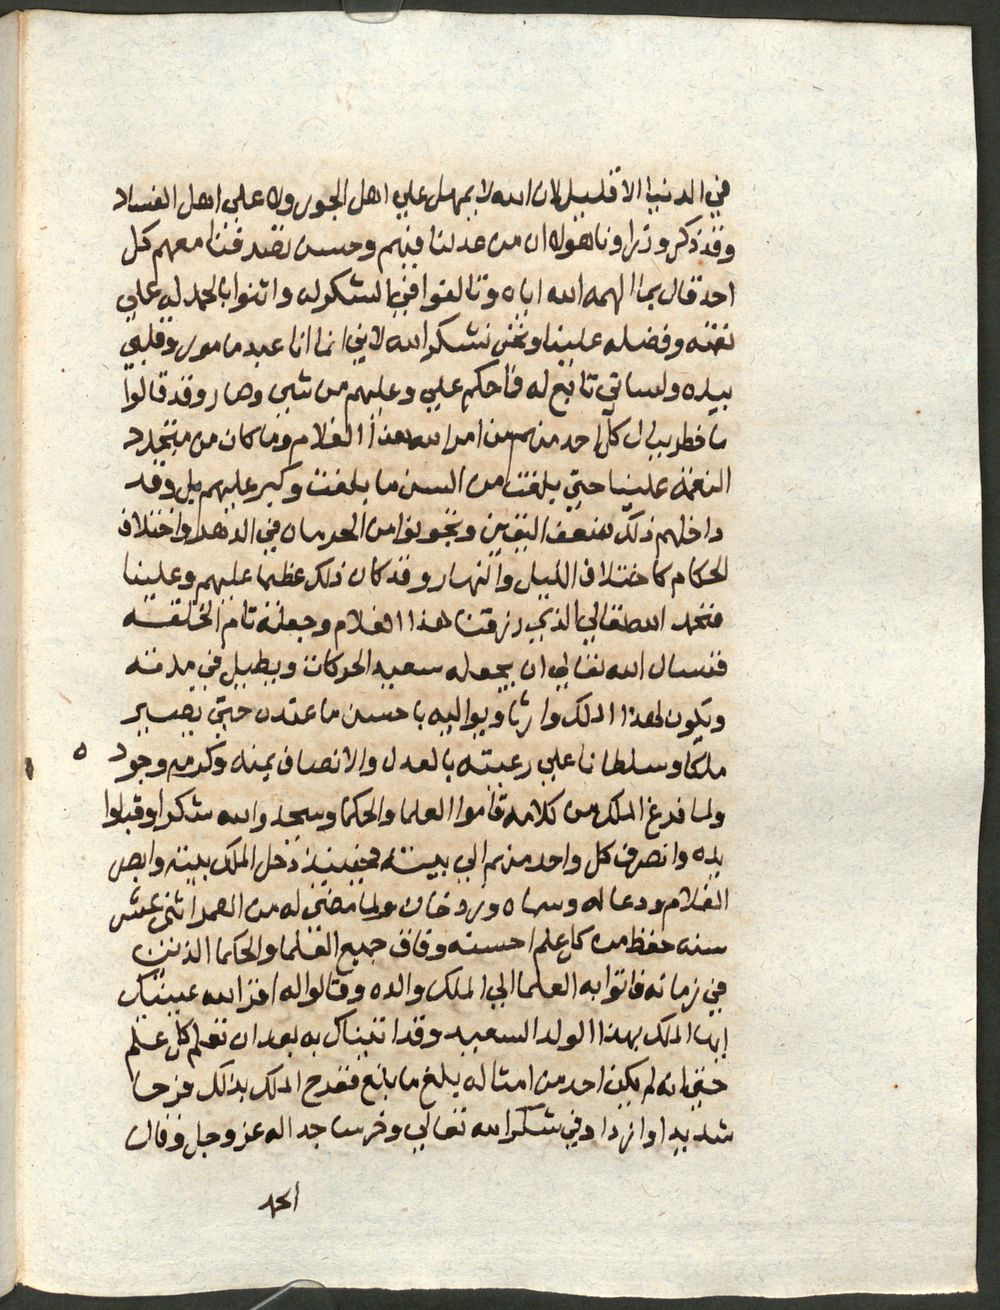 في الدنيا الا قليل لان الله لا يمهل علي اهل الجور ولا علي اهل الفساد
وقد ذكر وزراونا هولا ان من عدلنا فيهم وحسن تصدقنا معهم كل
احد قال بما الهمه الله اياه وتالفوا في الشكر له واثنوا بالحمد له علي
نعمته وفضله علينا ونحن نشكر الله لاني انما انا عبد مامور وقلبي
بيده ولساني تابع له فاحكم علي وعليهم من شي وصار وقد قالوا
ما خطر ببال كل احد منهم من امر الله بهذا الغلام وما كان من متجدد
النعمه علينا حتي بلغت من السن ما بلغت وكبر عليهم بل وقد
داخلهم ذلك ضعف اليقين ونجونوا من الحرمان في الدهر واختلاف
الحكام كاختلاف الليل والنهار وقد كان ذلك عظيما عليهم وعلينا
فنحمد الله تعالي الذي رزقنا هذا الغلام وجعله تام الخلقه
فنسال الله تعالي ان يجعله سعيد الحركات ويطيل في مدته
ويكون لهذا الملك وارثا ويواليه باحسن ما عنده حتي يصير
ملكا وسلطانا علي رعيته بالعدل والانصاف بمنه وكرمه وجود ه
ولما فرغ الملك من كلامه قاموا العلما والحكما وسجدوا لله شكرا وقبلوا
يده وانصرف كل واحد منهم الي بيته فحينيذ دخل الملك بيته وابصر
الغلام ودعا له وسماه وردخان ولما مضي له من العمر اثني عشر
سنه حفظ من كل علم احسنه وفاق جميع العلما والحكما الذين
في زمانه فاتوا به العلما الي الملك والده وقالوا له اقر الله عينيك
ايها الملك بهذا الولد السعيد وقد اتيناك به بعد ان تعلم كل علم
حتي انه لم يكن احد من امثاله يلغ ما بلغ ففرح الملك بذلك فرحا
شديدا وازداد في شكر الله تعالي وخر ساجدا له عز وجل وقال
الحمد